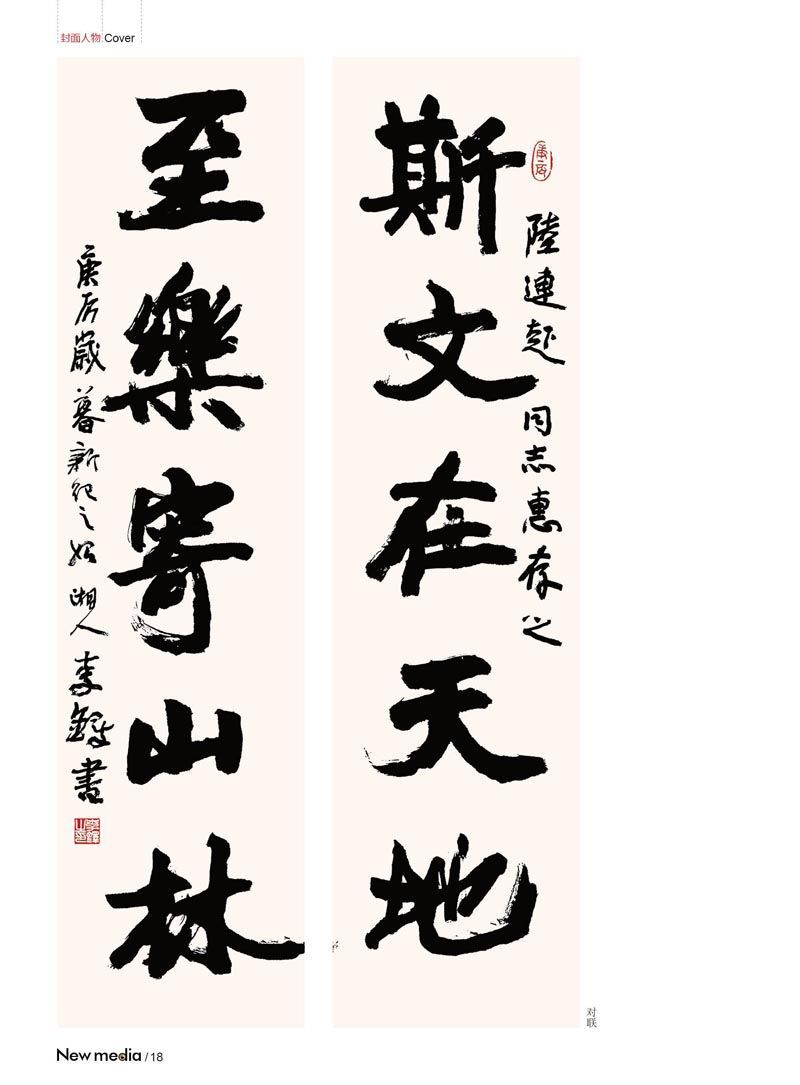 封面人物 Cover
陸連起 同志惠存之
斯文在天地
至樂寄山林
庚辰歲暮新紀之始 湘人 李鐸書
对联
New media / 18